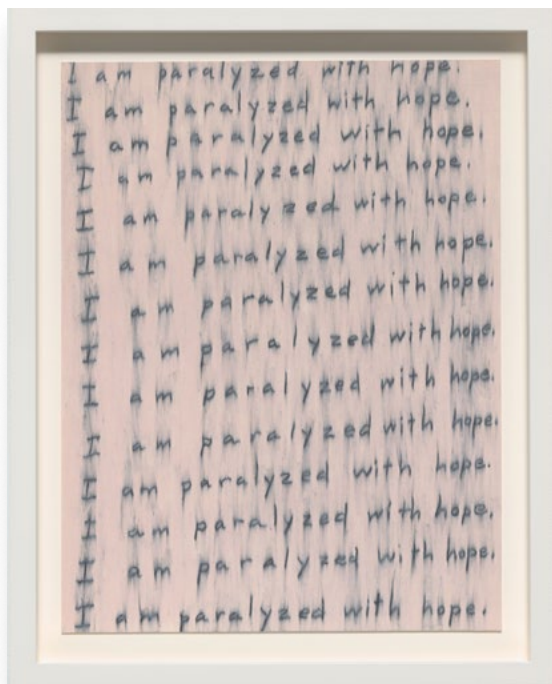 I am paralyzed with hope.
I am paralyzed with hope.
I am paralyzed with hope.
I am paralyzed with hope.
I am paralyzed with hope.
I am paralyzed with hope.
I am paralyzed with hope.
I am paralyzed with hope.
I am paralyzed with hope.
I am paralyzed with hope.
I am paralyzed with hope.
I am paralyzed with hope.
I am paralyzed with hope.
I am paralyzed with hope.